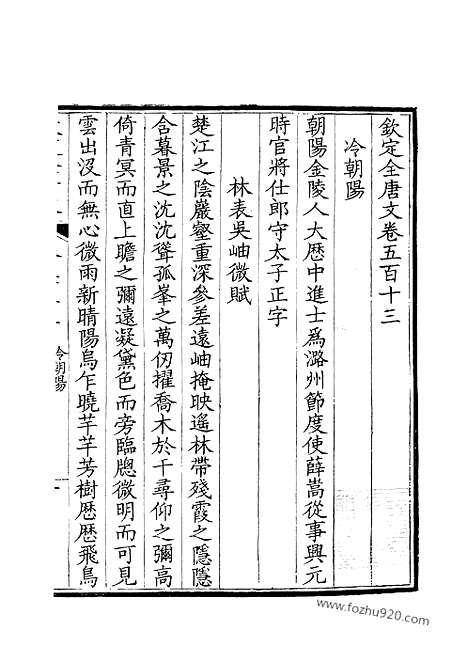 欽定全唐文卷五百十三
冷朝陽
朝陽金陵人大歷中進士爲潞州節度使薛嵩從事興元
時官將仕郎守太子正字
林表吳岫微賦
楚江之陰巖壑重深參差遠岫掩映遙林帶殘霞之隱隱
含暮景之沈沈聳孤峯之萬仞擢喬木於千尋仰之彌高
倚青冥而直上瞻之彌遠凝黛色而旁臨牕微明而可見
雲出沒而無心微雨新晴陽烏乍曉芊芊芳樹歷歷飛鳥
冷朝陽
一
www.fozhu920.com